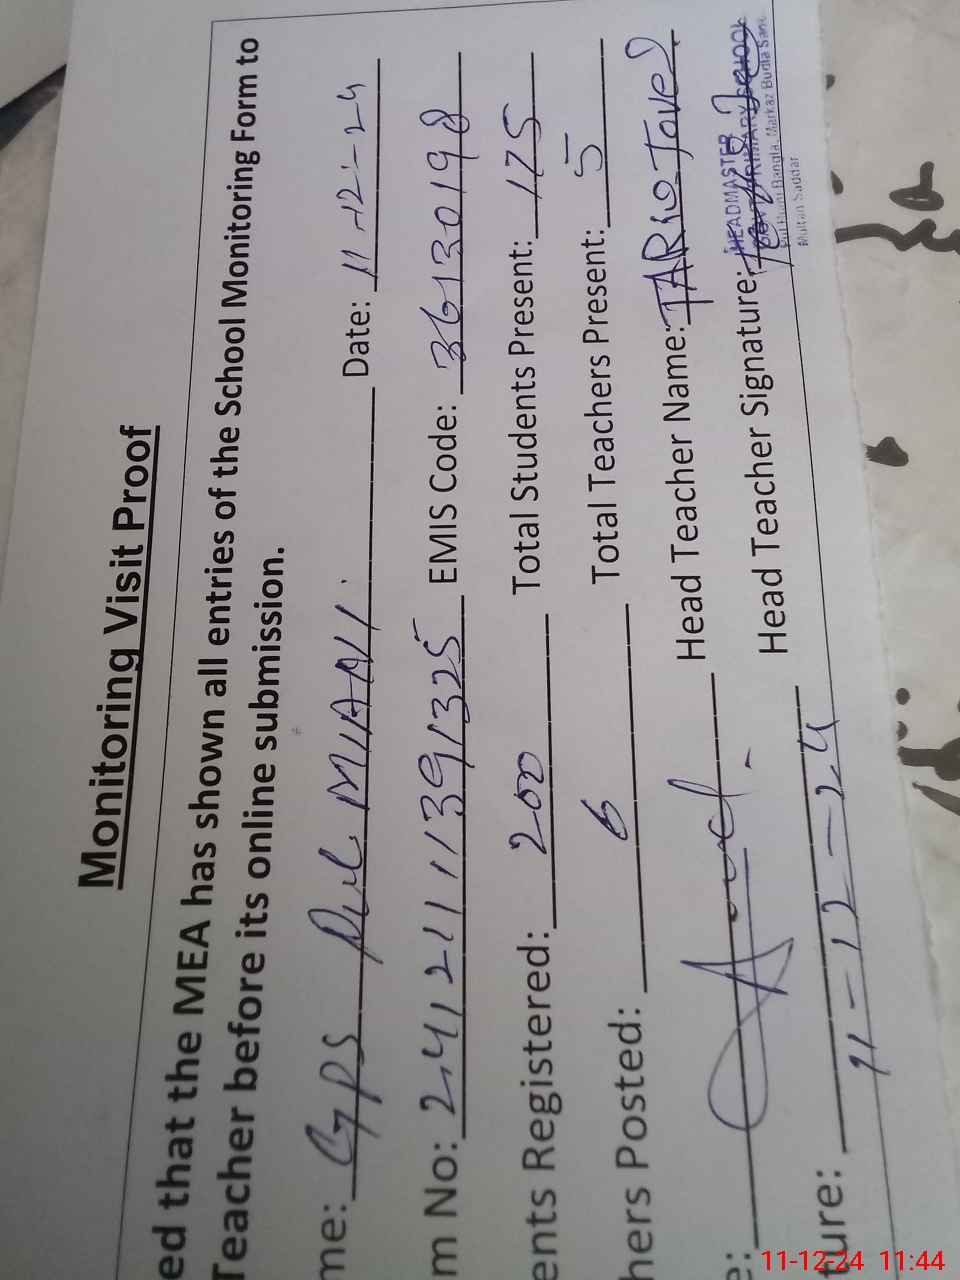 Monitoring Visit Proof
ed that the MEA has shown all entries of the School Monitoring Form to
Teacher before its online submission.
me: GPS Pul MIANI Date: 11-12-24
m No: 2412111391325 EMIS Code: 36130198
ents Registered: 200 Total Students Present: 175
hers Posted: 6 Total Teachers Present: 5
e: Head Teacher Name: TARIQ Javed
ture: 11-12-24 Head Teacher Signature:
HEADMASTER
GOVT. PRIMARY SCHOOL
Multan Saddar
11-12-24 11:44